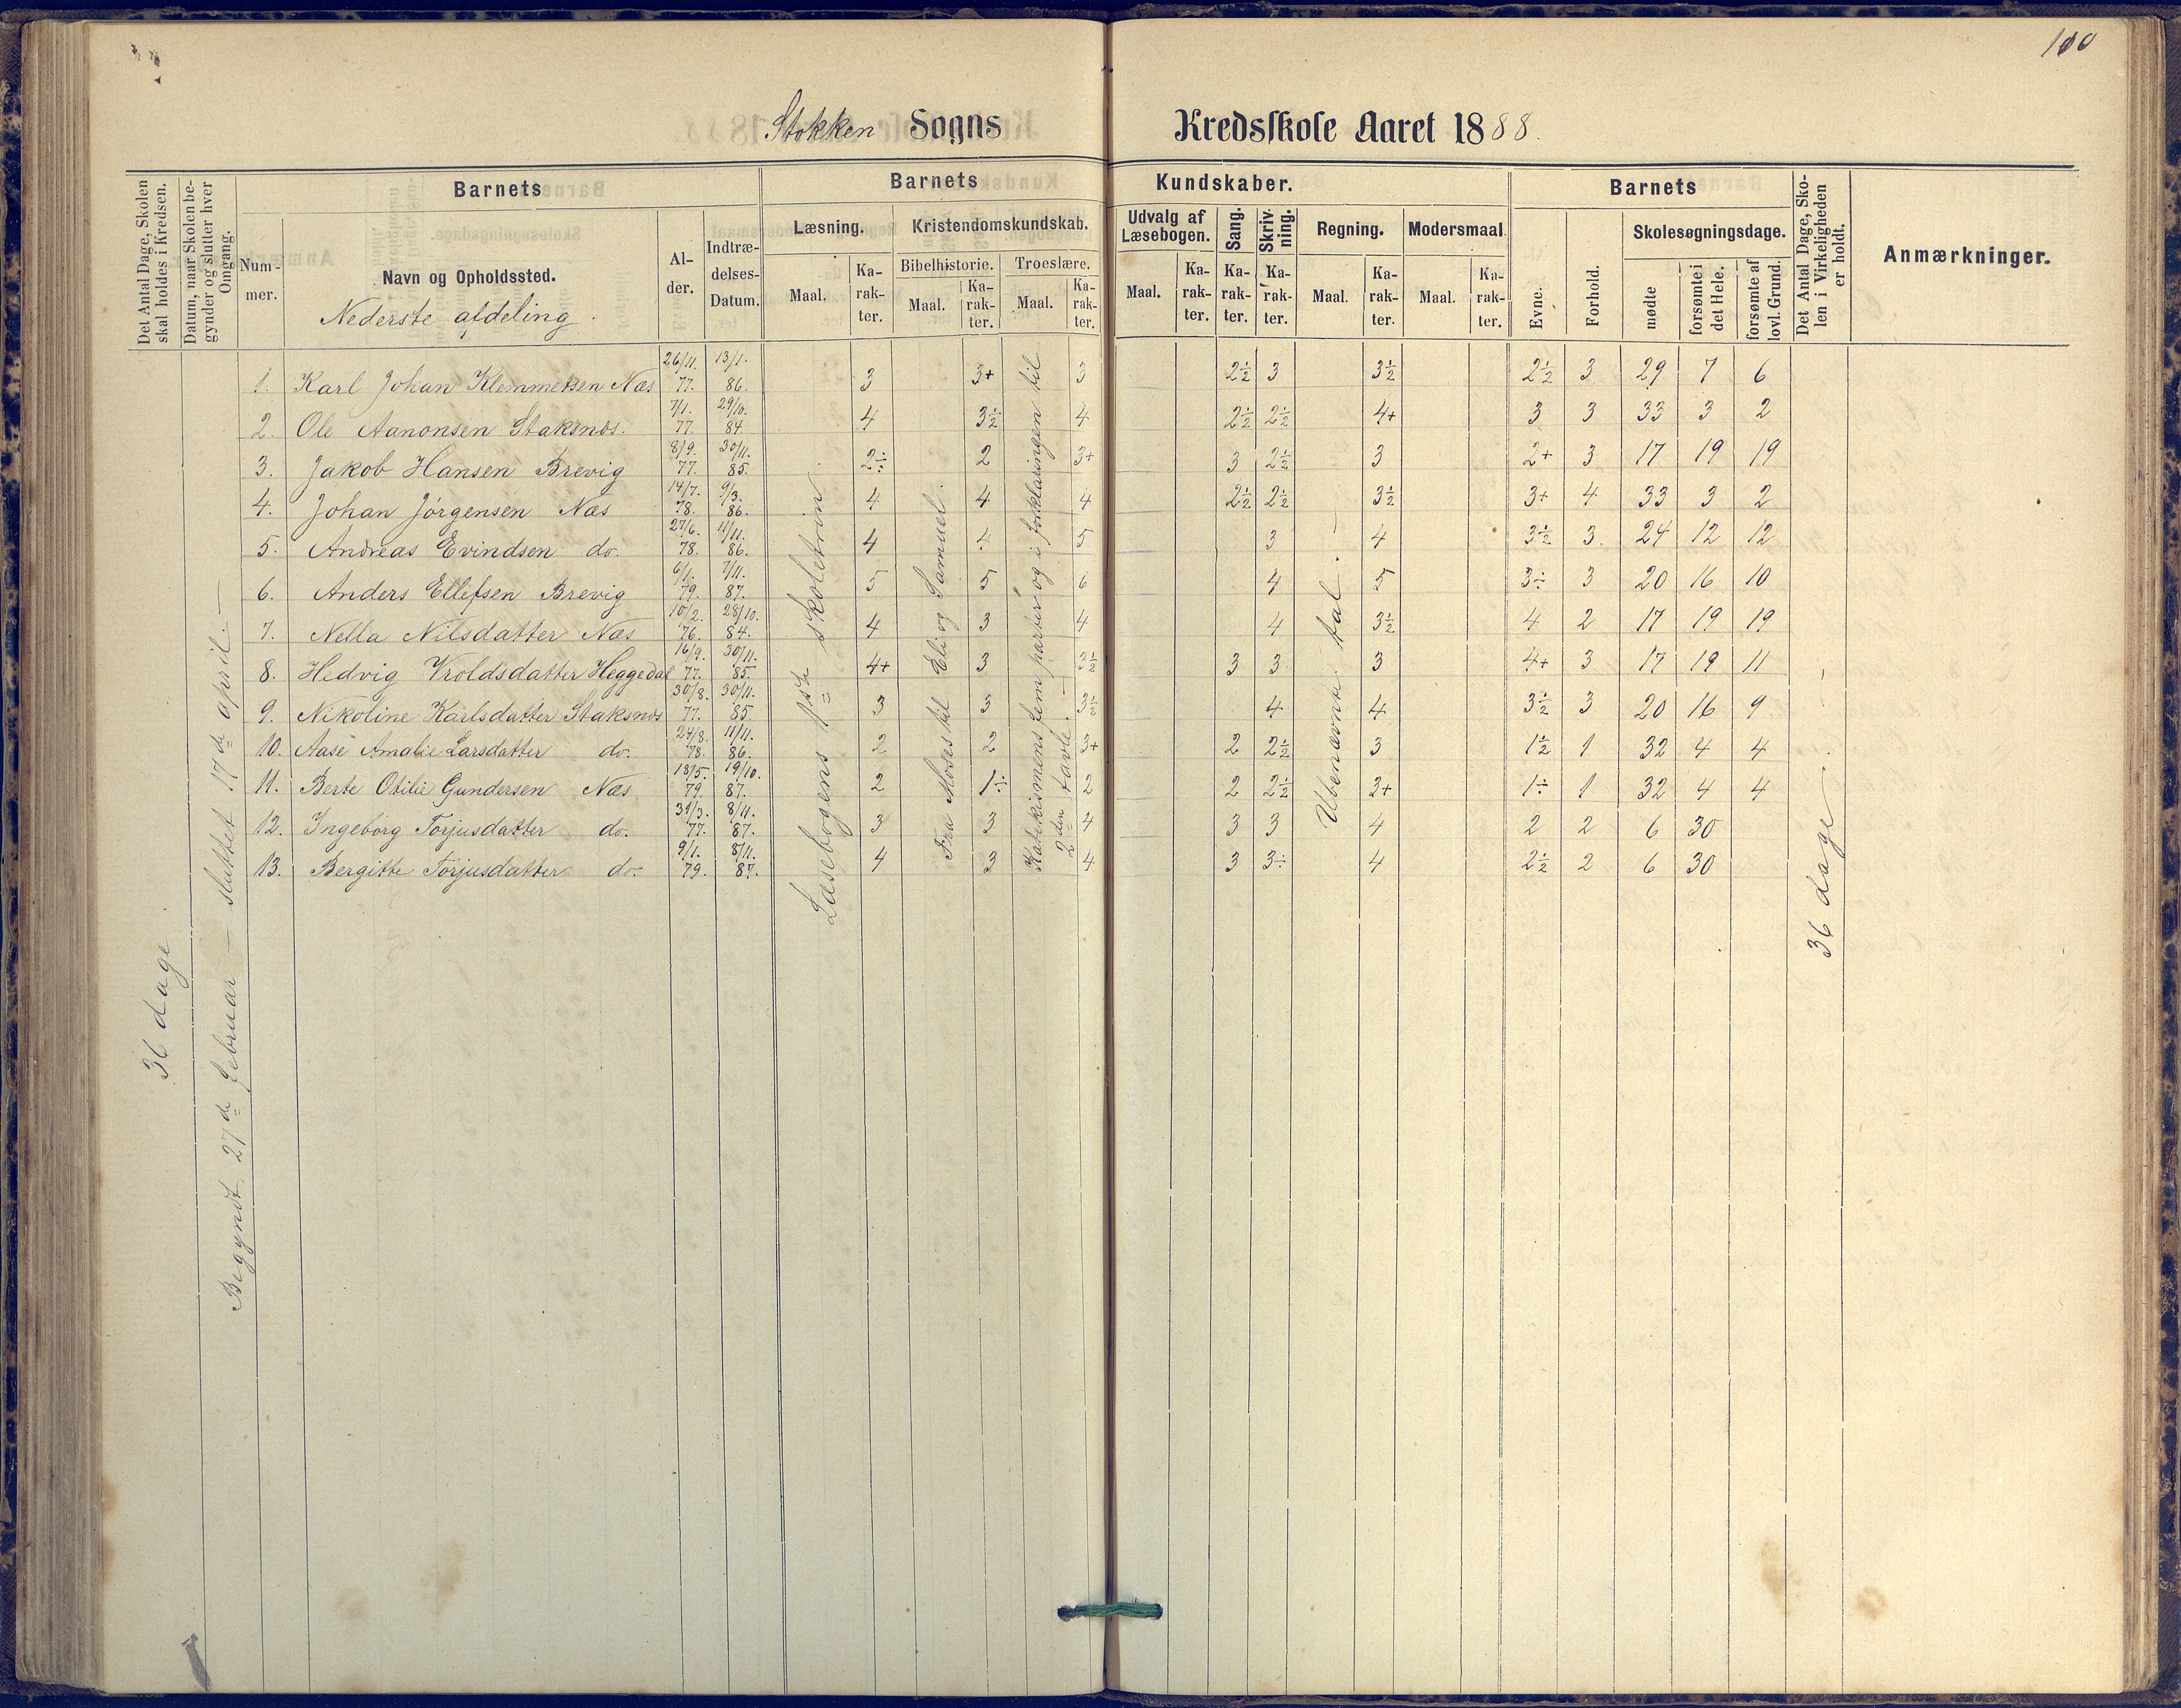 100
Stokken Sogns Kredsskole Aaret 1888.
Det Antal Dage, Skolen skal holdes i Kredsen.
Datum, naar Skolen begynder og slutter hver Omgang.
Barnets
Nummer.
Navn og Opholdssted.
Nederste afdeling.
Alder.
Indtrædelses-Datum.
Barnets Kundskaber.
Læsning.
Maal.
Karakter.
Kristendomskundskab.
Bibelhistorie.
Maal.
Karakter.
Troeslære.
Maal.
Karakter.
Udvalg af Læsebogen.
Maal.
Karakter.
Sang.
Karakter.
Skrivning.
Karakter.
Regning.
Maal.
Karakter.
Modersmaal.
Maal.
Karakter.
Barnets
Evne.
Forhold.
Skolesøgningsdage.
mødte
forsømte i det Hele.
forsømte af lovl. Grund.
Det Antal Dage, Skolen i Virkeligheden er holdt.
Anmærkninger.
36 dage
Begyndt 27de februar — sluttet 17de april. —
1. Karl Johan Klemmetsen Næs 26/11. 77. 13/1. 86. 3 3+ 3 2½ 3 3½ 2½ 3 29 7 6
2. Ole Aanonsen Staksnæs. 7/1. 77. 29/10. 84. 4 3½ 4 2½ 2½ 4+ 3 3 33 3 2
3. Jakob Hansen Brevig 8/9. 77. 30/11. 85. 2÷ 2 3+ 3 2½ 3 2+ 3 17 19 19
4. Johan Jörgensen Næs 14/7. 78. 9/3. 86. 4 4 4 2½ 2½ 3½ 3+ 4 33 3 2
5. Andreas Evindsen do. 27/6. 78. 11/11. 86. 4 4 5 3 4 3½ 3. 24 12 12
6. Anders Ellefsen Brevig 6/1. 79. 7/11. 87. 5 5 6 4 5 3÷ 3 20 16 10
7. Nella Nilsdatter Næs 10/2. 76. 28/10. 84. 4 3 4 4 3½ 4 2 17 19 19
8. Hedvig Vroldsdatter Heggedal 16/9. 77. 30/11. 85. 4+ 3 3½ 3 3 3 4+ 3 17 19 11
9. Nikoline Karlsdatter Staksnæs 30/8. 77. 30/11. 85. 3 3 3½ 4 4 3½ 3 20 16 9
10. Aase Amalie Larsdatter do. 24/8. 78. 11/11. 86. 2 2 3+ 2 2½ 3 1½ 1 32 4 4
11. Berte Otilie Gundersen Næs 18/5. 79. 19/10. 87. 2 1÷ 2 2 2½ 3+ 1÷ 1 32 4 4
12. Ingeborg Torjusdatter do. 31/3. 77. 8/11. 87. 3 3 4 3 3 4 2 2 6 30
13. Bergitte Torjusdatter do. 9/1. 79. 8/11. 87. 4 3 4 3 3÷ 4 2½ 2 6 30
Læsebogens 1ste skoletrin
Fra Moses til Eli og Samuel.
Katekismens fem parter og i forklaringen til
2den tavle. —
Ubenævnte tal. —
36 dage —